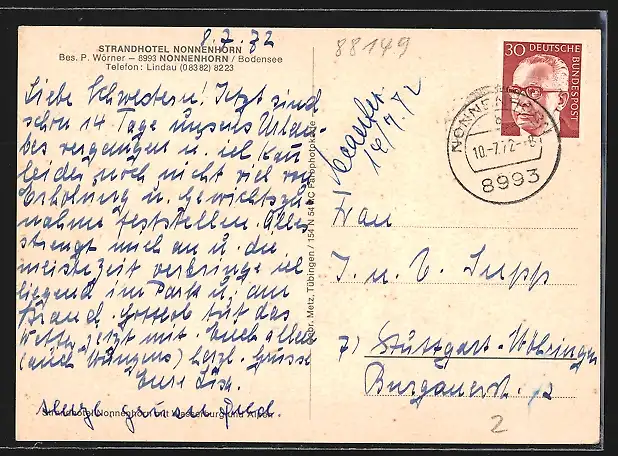 8.7.72
STRANDHOTEL NONNENHORN
Bes. P. Wörner – 8993 NONNENHORN / Bodensee
Telefon: Lindau (08382) 8223
Liebe Schwestern! Jetzt sind
schon 14 Tage unseres Urlau-
bes vergangen u. ich kann
leider noch nicht viel von
Erholung u. Gewichtszu-
nahme feststellen. Alles
strengt mich an u. die
meiste Zeit verbringe ich
liegend im Park u. am
Strand. Gottlob tut das
Wetter jetzt mit. Euch allen
(auch Wangens) herzl. Grüsse
Eure Lisa.
Strandhotel Nonnenhorn mit Wasserburg und Alpen
Gebr. Metz, Tübingen / 154 N 54 KC Farbphotokarte
88149
14/7.72
30 DEUTSCHE BUNDESPOST
NONNENHORN
10.-7.72-
8993
Frau
J. u. E. Supp
7) Stuttgart-Möhringen
Burgauerstr. 12
2